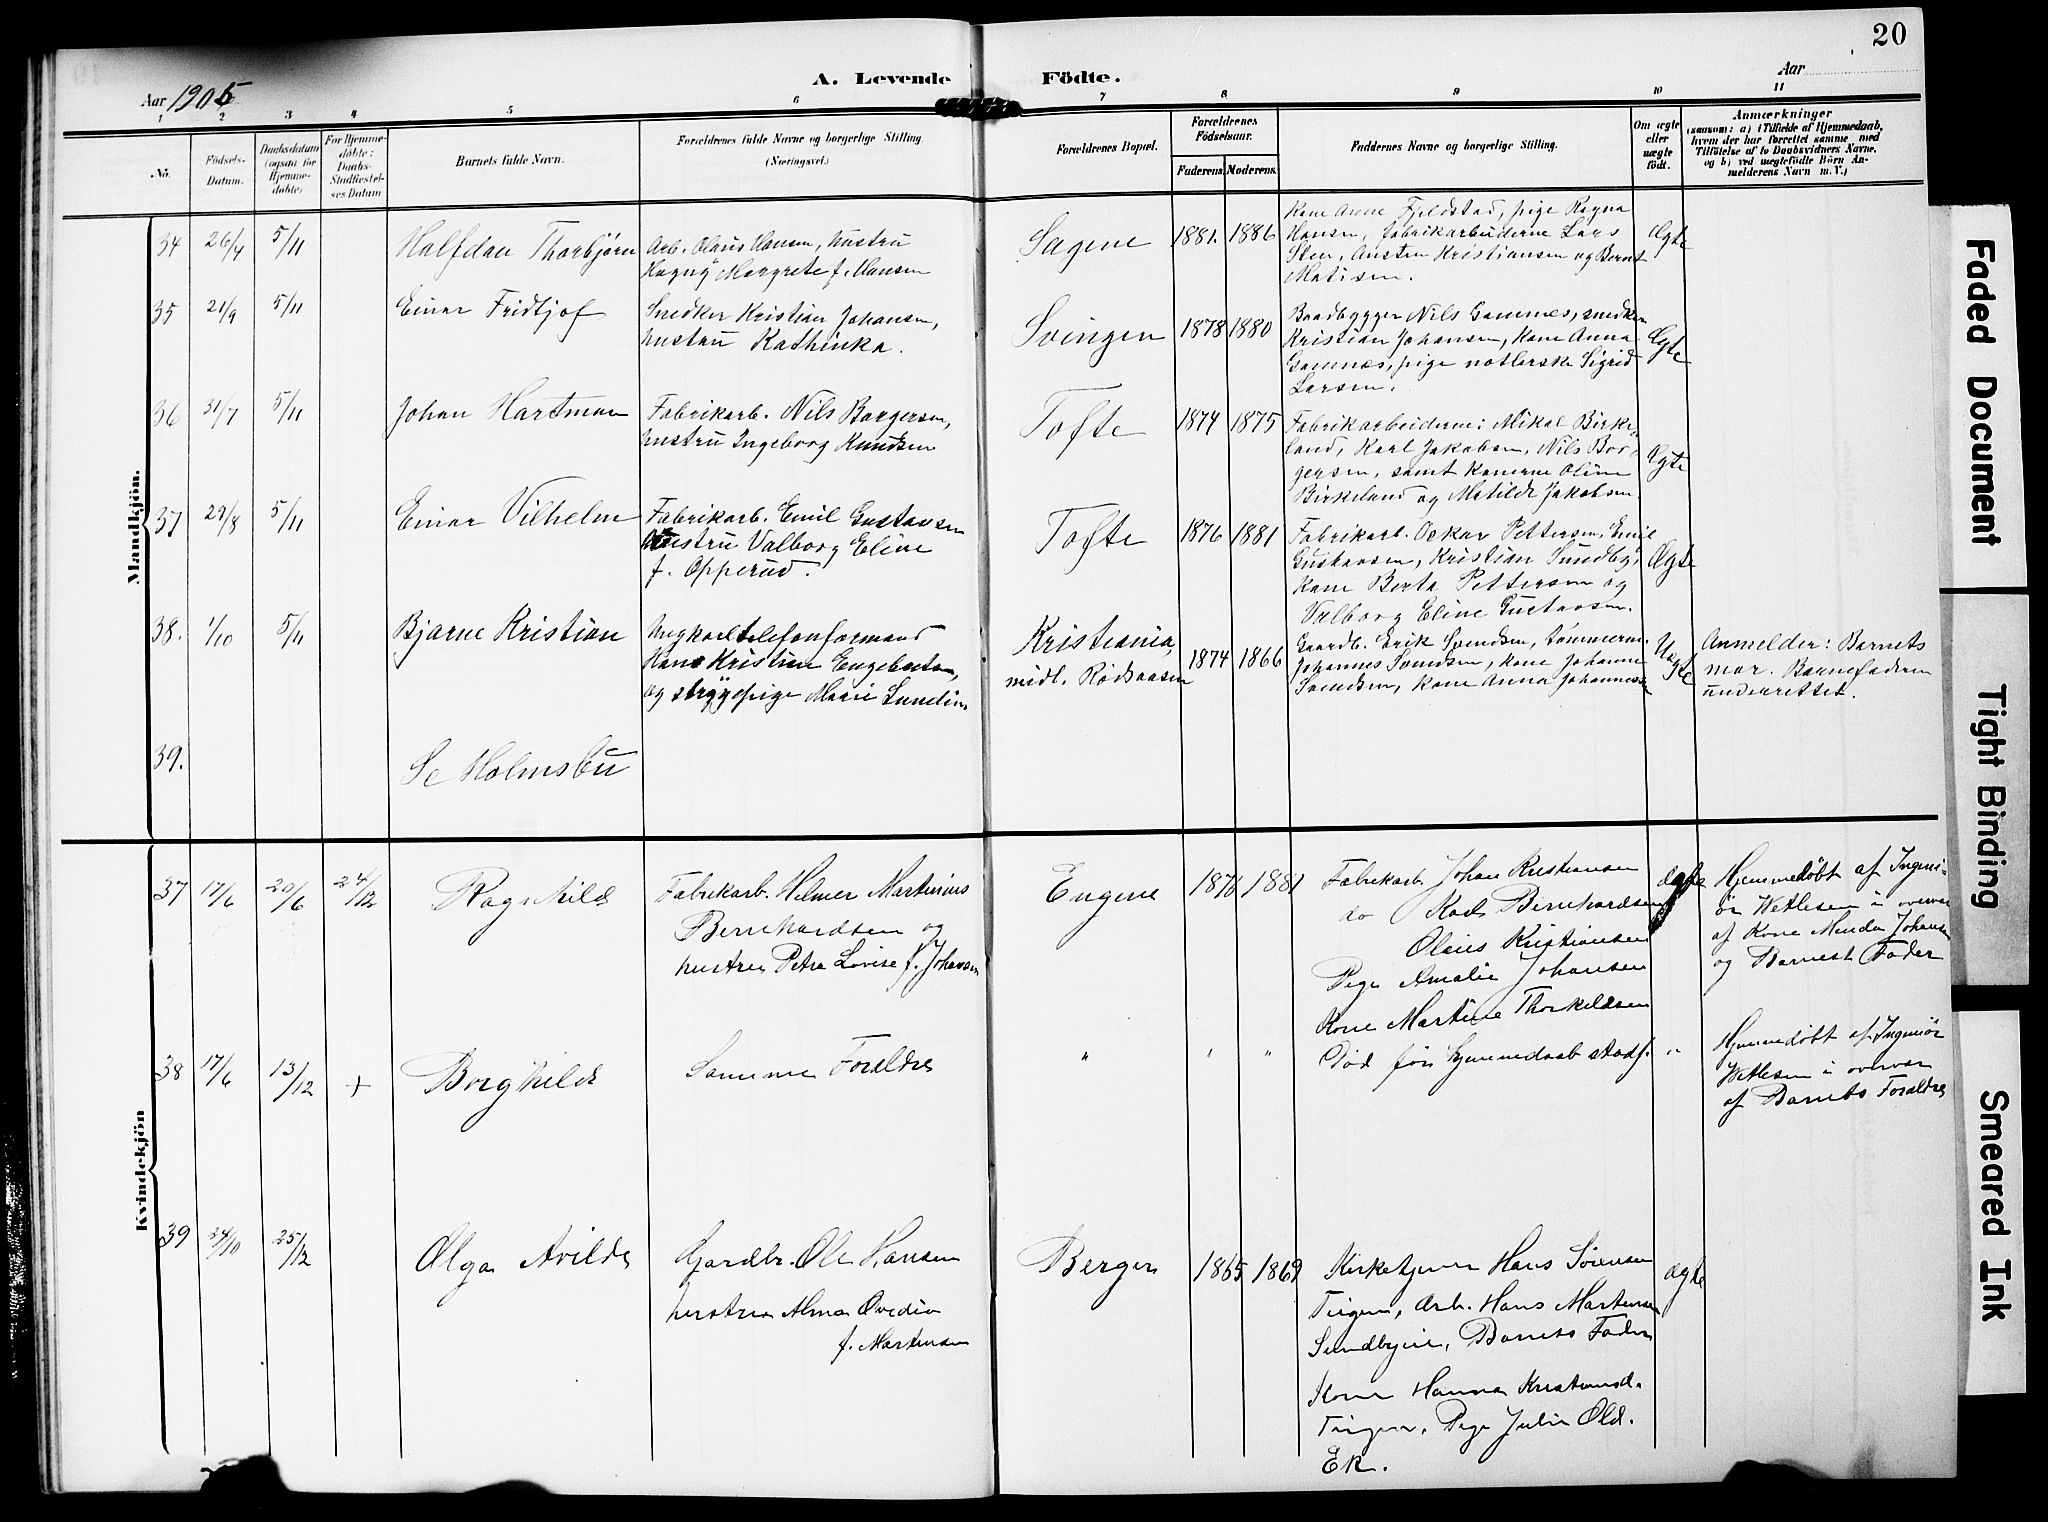 20
A. Levende Födte.
Aar 1905
Aar
1 2 3 4 5 6 7 8 9 10 11
No.
Födsels-
Datum.
Daabsdatum
(ogsaa for
Hjemme-
döbte)
For Hjemme-
döbte:
Daabs-
Stadfæstel-
ses Datum
Barnets fulde Navn.
Forældrenes fulde Navne og borgerlige Stilling.
(Næringsvei.)
Forældrenes Bopæl.
Forældrenes
Födselsaar.
Faderens Moderens.
Faddernes Navne og borgerlige Stilling.
Om ægte
eller
uægte
födt.
Anmærkninger
(saasom: a) i Tilfælde af Hjemmedaab,
hvem der har forrettet samme med
Tilföielse af to Daabsvidners Navne,
og b) ved uægtefödte Börn An-
melderens Navn m. V.)
Mandkjön.
34 26/4 5/11 Halfdan Thorbjørn
Arb. Olaus Hansen, hustru
Hagny Margrete f. Hansen
Sagene 1881. 1886
Kone Anne Fjeldstad, pige Ragna
Hansen, fabrikarbeiderne Lars
Sten, Austen Kristiansen og Bernt
Matisen.
Ægte
35 21/9 5/11 Einar Fridtjof
Snedker Kristian Johansen,
hustru Kathinka.
Svingen 1878 1880
Baadbygger Nils Gamnes, snedker
Kristian Johansen, kone Anna
Gamnæs, pige Sigrid
Larsen.
Ægte
36 31/7 5/11 Johan Hartman
Fabrikarb. Nils Borgersen,
hustru Ingeborg Knudsen
Tofte 1874 1875
Fabrikarbeiderne: Mikal Birke-
land, Karl Jakobsen, Nils Bor-
gersen, samt konerne Oline
Birkeland og Matilde Jakobsen.
Ægte
37 29/8 5/11 Einar Vilhelm
Fabrikarb. Emil Gustavsen
hustru Valborg Eline
f. Opperud.
Tofte 1876 1881
Fabrikarb. Oskar Pettersen, Emil
Gustavsen, Kristian Sundby,
kone Berta Pettersen og
Valborg Eline Gustavsen.
Ægte
38. 1/10 5/11 Bjarne Kristian
Ungkarl telefonformand
Hans Kristian Engebretsen,
og strygepige Marie Lundin
Kristiania,
midl. Rødsaasen
1874 1866
Gaardb. Erik Svendsen, tømmerm.
Johannes Svendsen, kone Johanne
Svendsen, kone Anna Johannessen
Uægte
Anmelder: Barnets
mor. Barnefaderen
underrettet.
39. Se Holmsbu
Kvindekjön
37 17/6 20/6 24/12 Ragnhild
Fabrikarb. Helmer Martinius
Bernhardsen og
hustru Petra Lovise f. Johansen
Engene 1876 1881
Fabrikarb. Johan Kristiansen
do Karl Bernhardsen
Olaus Kristiansen
Pige Amalie Johansen
Kone Martine Thorkildsen
ægte
Hjemmedøbt af Ingeni-
ør Wetlesen i overvær
af Kone Minda Johansen
og Barnets Fader
38 17/6 13/12 + Borghild
Samme Forældre
" " "
Død før hjemmedaab stadf.
"
Hjemmedøbt af Ingeniør
Wetlesen i overvær
af Barnets Forældre
39 24/10 25/12 Olga Avilde
Gjardbr. Ole Hansen
hustru Alma Ovedia
f. Martinsen
Bergen 1865 1869
Kirketjener Hans Sørensen
Teigen, Arb. Hans Martinsen
Sundbyeie, Barnets Fader
Kone Hanna Kristiansd.
Teigen, Pige Julie Old.
Ek.
ægte
Faded Document
Tight Binding
Smeared Ink